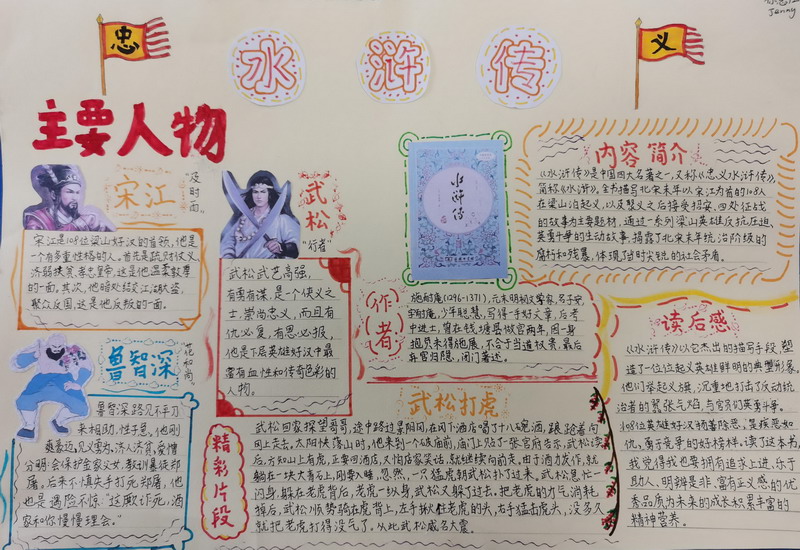 Jenny
忠
水浒传
义
主要人物
宋江
"及时雨"
宋江是108位梁山好汉的首领,他是
一个有多重性格的人。首先是疏财仗义、
济弱扶贫、孝忠皇帝,这是他温柔敦厚
的一面。其次,他暗处结交江湖大盗,
聚众反国,这是他反叛的一面。
武松
"行者"
武松武艺高强,
有勇有谋,是一个侠义之
士,崇尚忠义,而且有
仇必复,有恩必报,
他是下层英雄好汉中最
富有血性和传奇色彩的
人物。
水浒传
内容简介
《水浒传》是中国四大名著之一,又称《忠义水浒传》,
简称《水浒》,全书描写北宋末年以宋江为首的108人
在梁山泊起义,以及聚义之后接受招安,四处征战
的故事为主要题材,通过一系列梁山英雄反抗压迫、
英勇斗争的生动故事,揭露了北宋末年统治阶级的
腐朽和残暴,体现了当时尖锐的社会矛盾。
作者
施耐庵(1296-1371),元末明初文学家,名子安,
字耐庵,少年聪慧,写得一手好文章,后考
中进士,曾在钱塘县做官两年,因一身
抱负未得施展,不合于当道权贵,最后
弃官归隐,闭门著述。
花和尚
鲁智深
鲁智深路见不平刀
来相助,性子急,他刚
爽豪迈,见义勇为,济人济贫,爱憎
分明:会保护金家父女,教训暴徒郑
屠,后来不慎失手打死郑屠,他
也是遇险不惊:"这厮诈死,洒
家和你慢慢理会。"
武松打虎
精彩片段
武松回家探望哥哥,途中路过景阳冈,在冈下酒店喝了十八碗酒,踉跄着向
冈上走去。太阳快落山时,他来到一个破庙前,庙门上贴了一张官府告示,武松读
后,方知山上有虎,正要回酒店,又怕店家笑话,就继续向前走。由于酒力发作,就
躺在一块大青石上,刚要入睡,忽然,一只猛虎朝武松扑了过来,武松急忙一
闪身,躲在老虎背后,老虎一纵身,武松又躲了过去,把老虎的力气消耗
掉后,武松顺势骑在虎背上,左手揪住老虎的头,右手猛击虎头,没多久
就把老虎打得没气了。从此武松威名大震。
读后感
《水浒传》以它杰出的描写手段,塑
造了一位位起义英雄鲜明的典型形象。
他们举起义旗,沉重地打击了反动统
治者的嚣张气焰,与官吏们英勇斗争。
108位英雄好汉稍善除恶,是疾恶如
仇、勇于竞争的好榜样,读了这本书,
我觉得我也要拥有追求上进、乐于
助人、明辨是非、富有正义感的优
秀品质为未来的成长积累丰富的
精神营养。